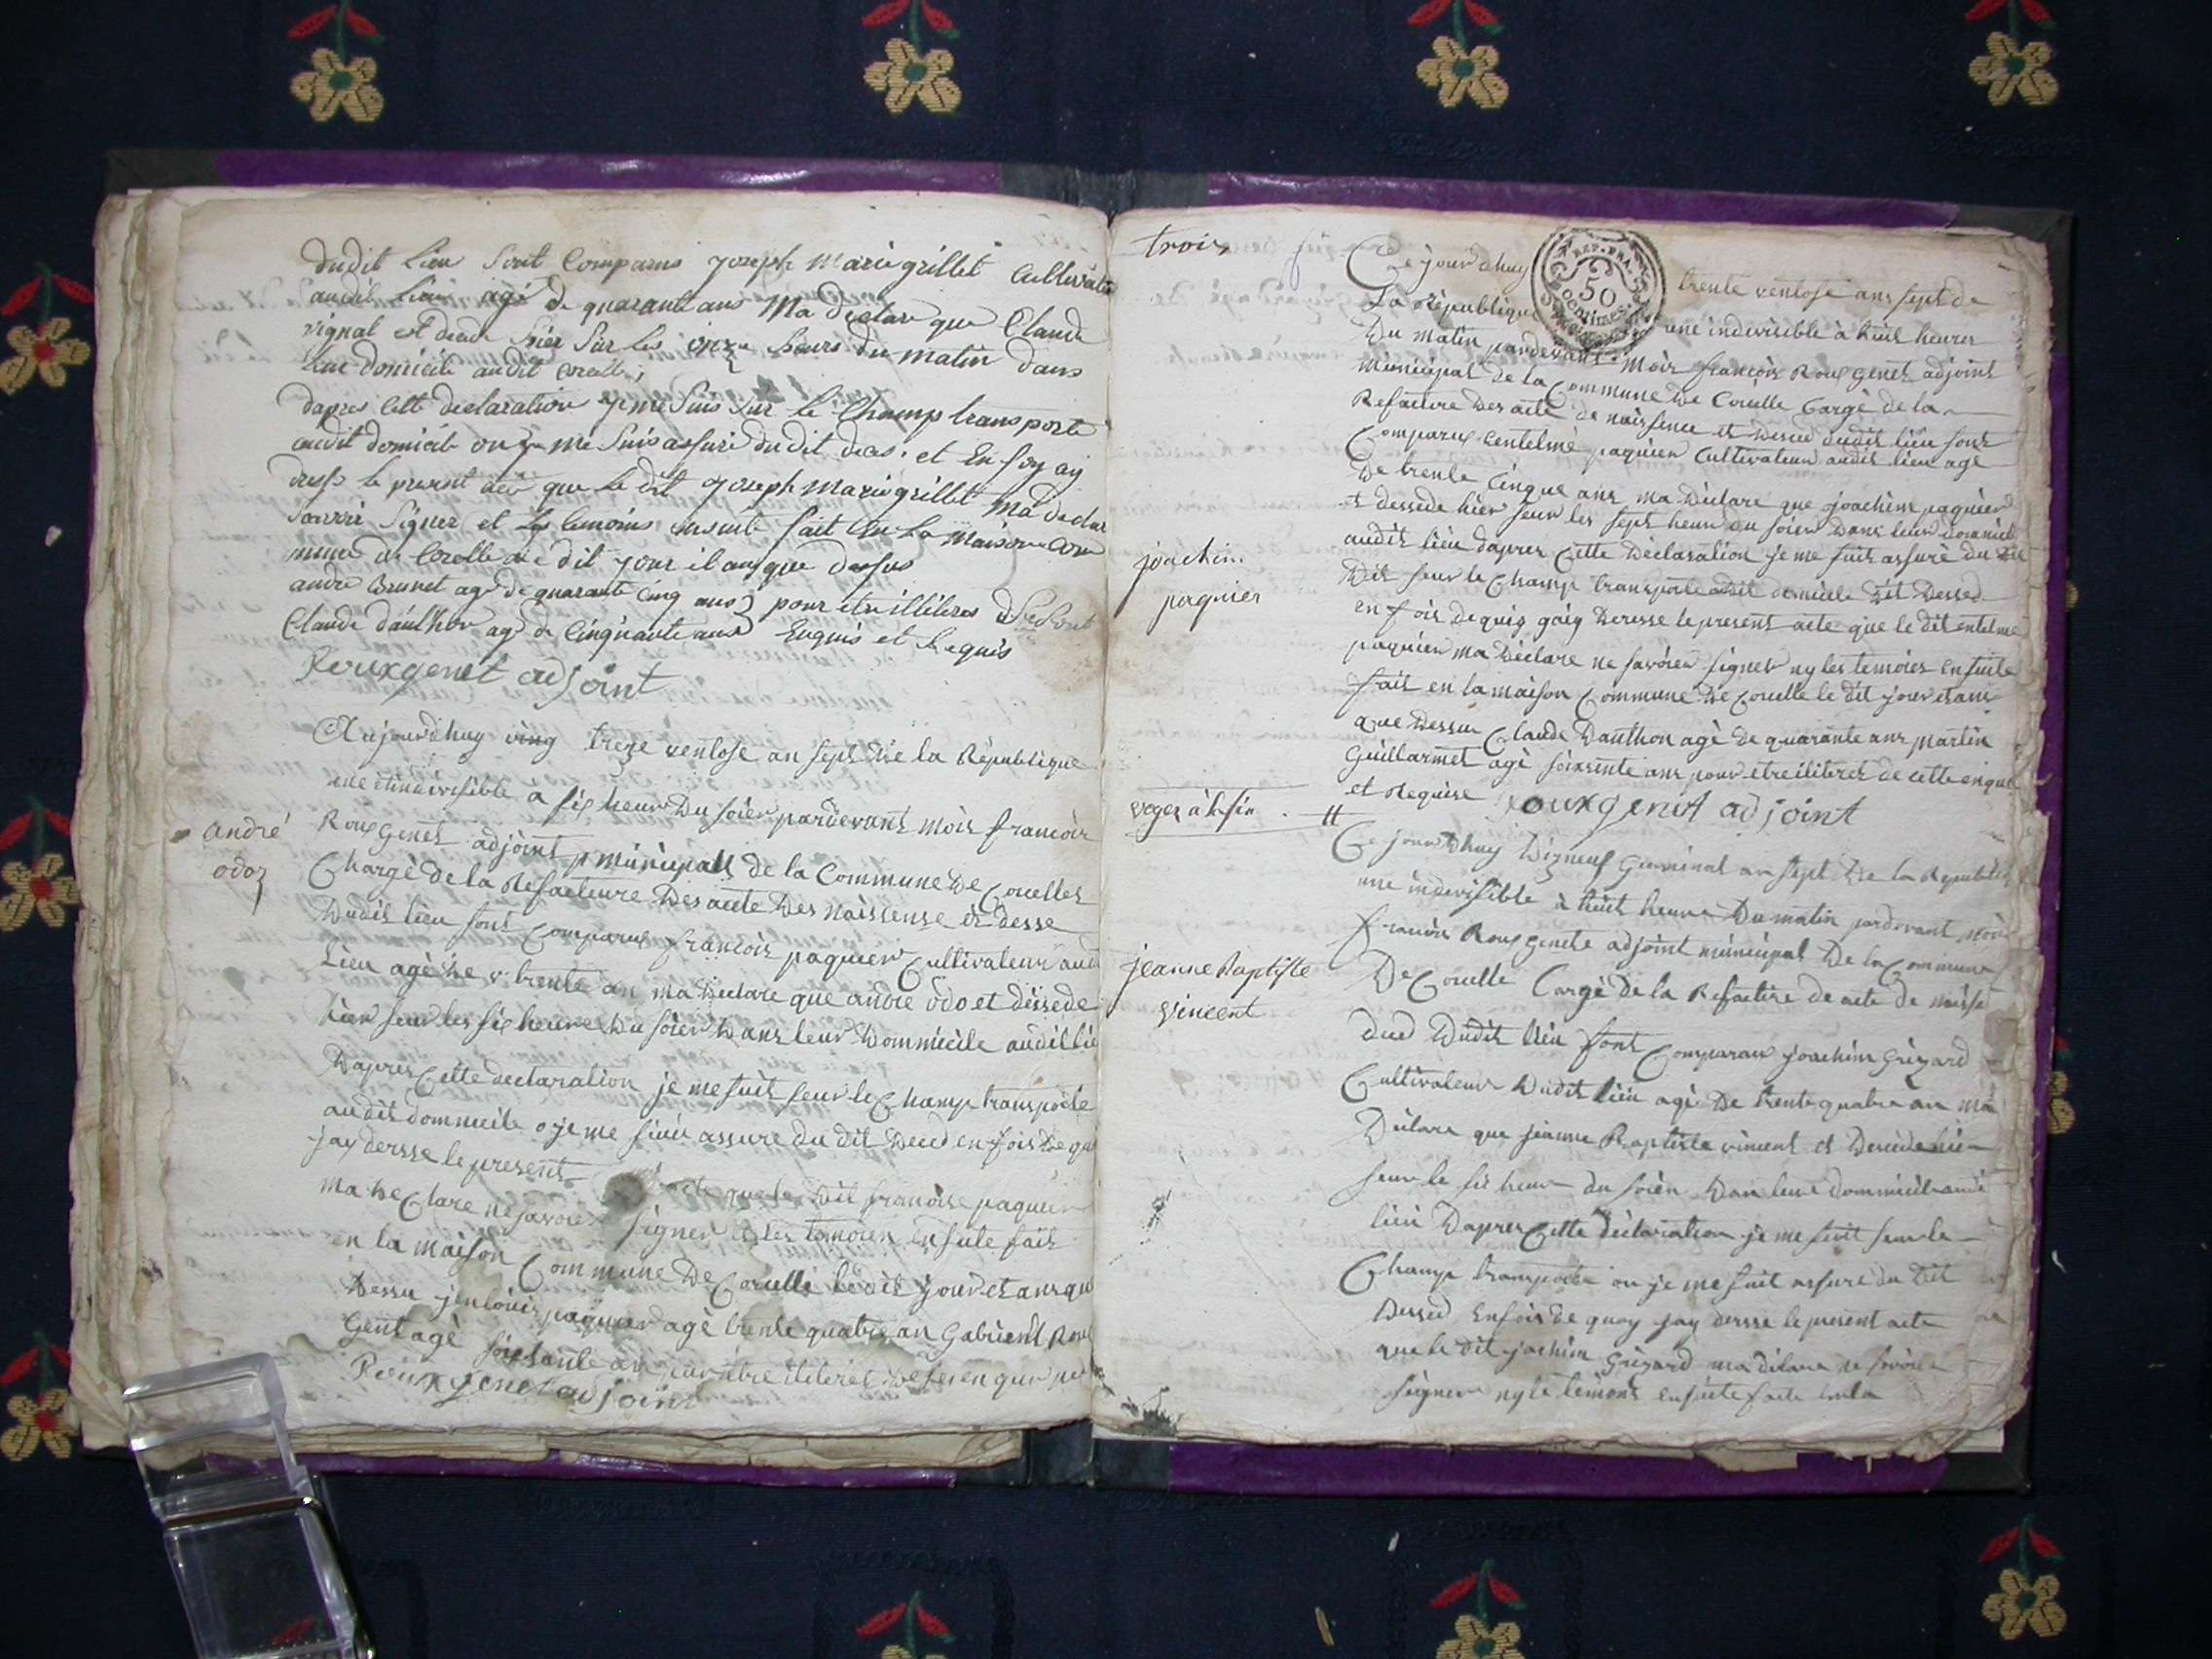 dudit Lieu Sont Comparus joseph Marie grillet Cultivate
audit Lieu agé de quarant ans Ma declare que Claude
vignat est decede hier Sur les onze heurs du matin dans
Leur domicile audit corelle ;
dapres Cette declaration je me Suis Sur le Champ transporté
audit domicile ou je me Suis assuré du dit deces . et En foy ay
dressé le present acte que Le dit joseph Marie grillet Ma declar
Savoir Signer et Les temoins ensuite fait En La Maison Com
mune de Corelle le dit jour et an que dessus
andre Brunet agé de quarante Cinq ans pour etre illiteres de Ce
Claude dauthon agé de Cinquante ans Enquis et Requis
Rouxgenet adjoint
Aujourdhuy ving treze ventose an sept de la République
une et indivisible à six heur du soier pardevant mois francois
Roux genet adjoint municipall de la Commune de Corelles
andré
odoz
Chargé de la Refacteure des acte des naissense et desse
dudit lieu sont comparus francois paquier Cultivateur audit
Lieu agé de trente an ma declare que andré odo et dessede
hier seur les six heure du soier dans leur dommicile audit lie
Dapres Cette declaration je me suit seur le Champ transporte
audit dommicile o je me suis assure du dit deced en fois de qu
jay dersse le present acte que le dit francoise paquier
ma declare ne savoier signer et les temoien ensuite fait
en la maison Commune de Corelle le dit jour et ans que
dessu jenlouis paquier agé trente quatre an Gabrient Roux
Genet agé soixsante an pur etre iliteret de se enquir
Rouxgenet adjoint
trois
REP. FRA.
50
CENTIMES
Ce jourdhuy trente ventose ans sept de
La République une indivisible à huit heures
Du matin pardevant mois francois Roux genet adjoint
municipal de la Commune de Corelle Cargé de la
Refacture des acte de naissence et desced dudit lieu sont
Comparus entelme paquier Cultivateur audit lieu agé
De trente Cinque ans ma declare que joachim paquier
et dessede hier seur les sept heur du soier dans leur domicil
audit lieu dapres Cette declaration je me suis assuré du dit
dit seur le Champ transporté audit domicile dit dessed
joachim
paquier
en fois de quiy jaiy deresse le present acte que le dit entelme
paquier ma declare ne savoier signer ny les temoies ensuite
fait en la maison Commune de Corelle le dit jour et ans
que dessu Claude Danthon agé de quarante ans martin
Guillarmet agé soixsente ans pour etre iliteret de cette enque
et Requise Rouxgenet adjoint
voyez à la fin . #
Ce jourdhuy digneuf Germinal an sept de la Republiq
une indivisible à huit heure Du matin pardevant mois
francois Roux genete adjoint municipal De la Commune
jeanne Baptiste
vincent
De Corelle Cargé de la Refactire de acte de naisse
dud dudit lieu sont Comparaus joachim Grizard
Cultivateur dudit lieu agé De trente quatre an ma
Déclare que jeanne Baptiste vincent et Decede hier
seur le six heur du soier Dan leur dommicile audi
lieu Dapres Cette déclaration je me suit seur le
Champ transporte ou je me suit assuré du dit
Dessed enfois de quoy jay dersse le present acte
que le dit joachim Grizard ma dilare ne savoier
signer ny le temons ensuite fait en la